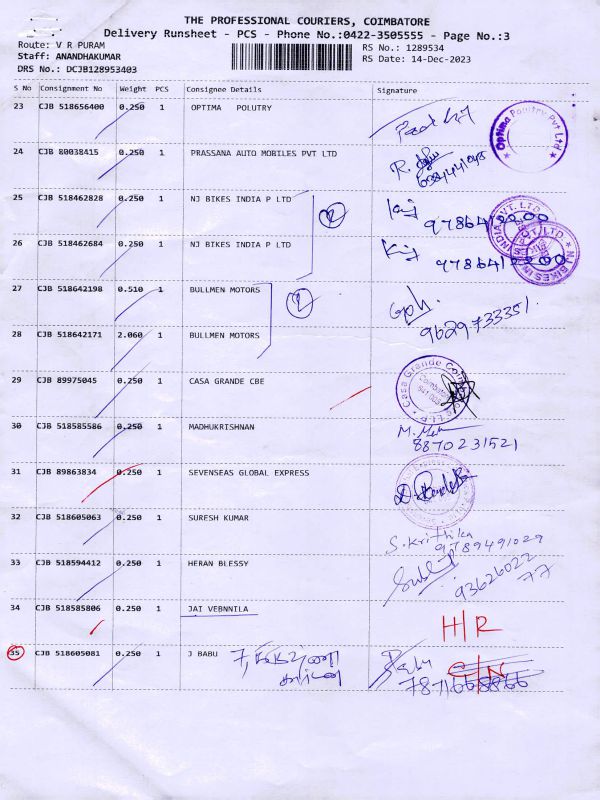 THE PROFESSIONAL COURIERS, COIMBATORE
Delivery Runsheet - PCS - Phone No.:0422-3505555 - Page No.:3
Route: V R PURAM
RS No.: 1289534
Staff: ANANDHAKUMAR
RS Date: 14-Dec-2023
DRS No.: DCJB128953403
S No Consignment No Weight PCS Consignee Details Signature
23 CJB 518656400 0.250 1 OPTIMA POLUTRY
Optima Poultry Pvt Ltd
24 CJB 80038415 0.250 1 PRASSANA AUTO MOBILES PVT LTD
25 CJB 518462828 0.250 1 NJ BIKES INDIA P LTD
2
26 CJB 518462684 0.250 1 NJ BIKES INDIA P LTD
27 CJB 518642198 0.510 1 BULLMEN MOTORS
2
9629733351
28 CJB 518642171 2.060 1 BULLMEN MOTORS
29 CJB 89975045 0.250 1 CASA GRANDE CBE
30 CJB 518585586 0.250 1 MADHUKRISHNAN
8870231521
31 CJB 89863834 0.250 1 SEVENSEAS GLOBAL EXPRESS
32 CJB 518605063 0.250 1 SURESH KUMAR
S.Krithika
9789491029
33 CJB 518594412 0.250 1 HERAN BLESSY
93626022
77
34 CJB 518585806 0.250 1 JAI VEBNNILA
H/R
35 CJB 518605081 0.250 1 J BABU
Babu
C/N